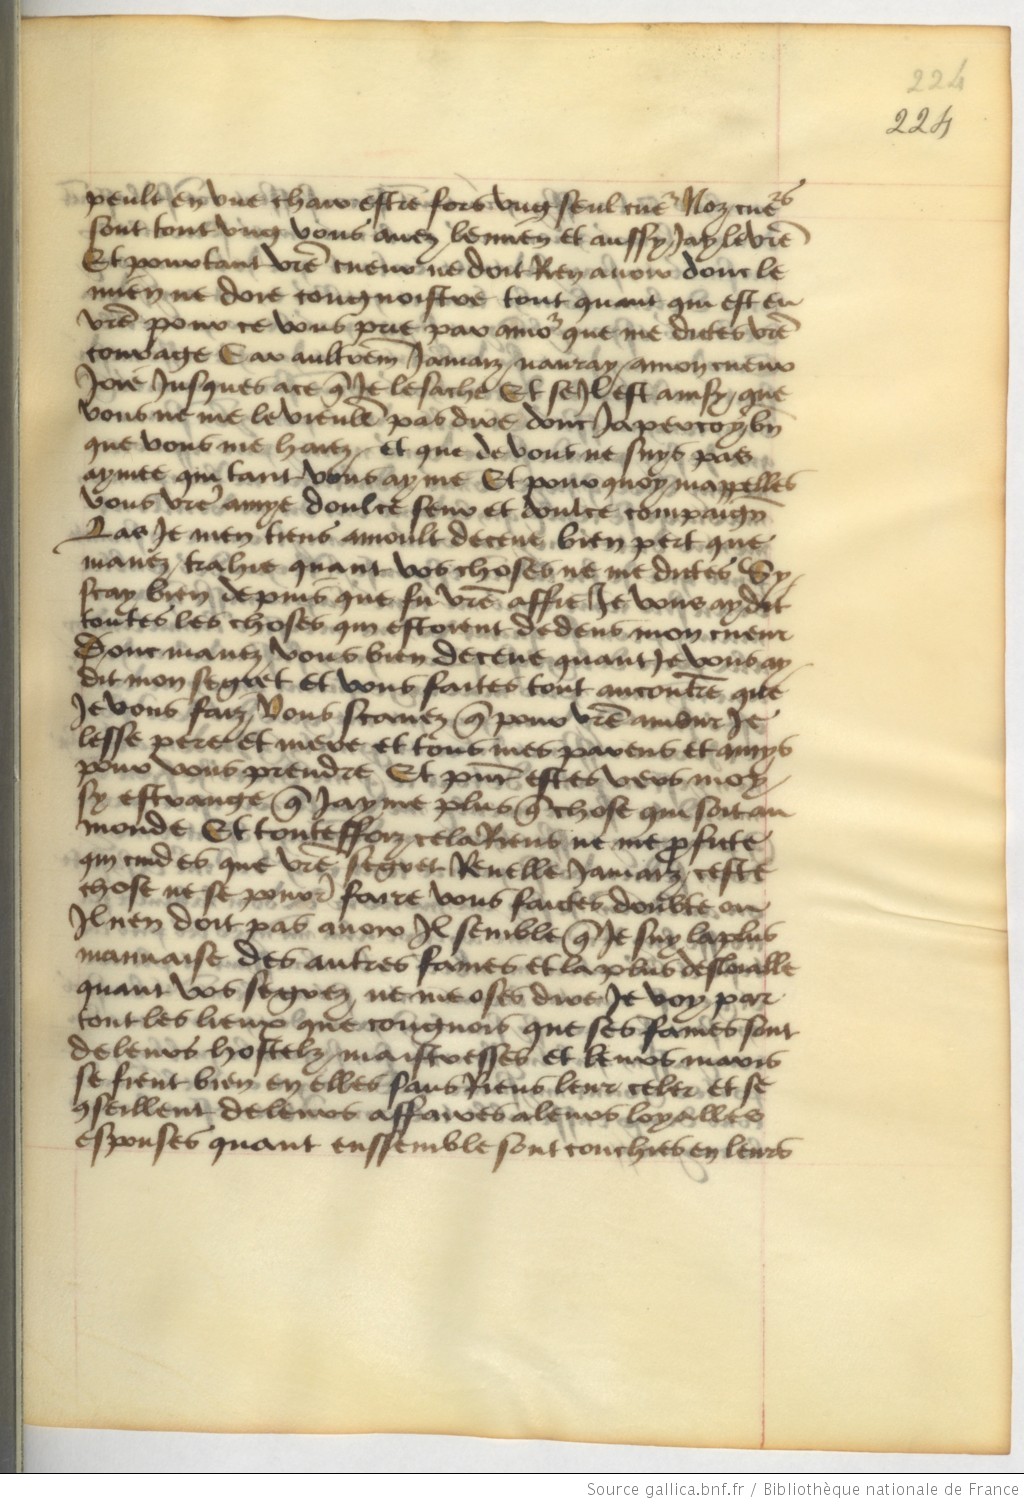 224
224
peult en une chair estre fors ung seul cue͛ Noz cue͛s
sont tout ung vous avez le mien et aussy Jay le vr̃e
Et pourtant vr̃e cueur ne doit Rien avoir donc le
mien ne doie congnoistre tout quant qui est en
vr̃e pour ce vous prie par amo͛ que me dictes vr̃e
courage Car aultrem̃ Jamaiz nauray a mon cueur
Joie Jusques ace q̃ Je le sache Et se Il est ainsy que
vous ne me le vieulle͂ pas dire donc Japercoy bñ
que vous me haiez et que de vous ne suys pas
aymee qui tant vous ayme Et pourquoy mappelles
vous vr̃e amye doulce seur et doulce compaign̄
Las Je men tiens amoult deceue bien pert que
mavez trahie quant vos choses ne me dictes Sy
scay bien depuis que fu vr̃e affie Je vous ay dit
toutes les choses qui estoient dedens mon cueur
Donc mavez vous bien deceue quant Je vous ay
dit mon segret et vous faites tout aucontr̃e que
Je vous faiz Vous scavez q̃ pour vr̃e amour Je
lesse pere et mere et tous mes parens et amys
pour vous prendre Et puis estes vers moy
sy estrange q̃ Jayme plus q̃ chose qui soit au
monde Et touteffoiz cela Riens ne me ꝓfite
qui cuides que vr̃e segret Revelle Jamaiz ceste
chose ne se pour͛ faire vous faictes doubte ou
Il nen doit pas avoir Il semble q̃ Je suy la plus
mauvaise des autres fames et la plus desloialle
quant vos segrez ne me oses dire Je voy par
tout les lieux que congnois que ses fames sont
de leurs hostelz maistresses et leurs maris
se fient bien en elles sans Riens leur celer et se
ꝯseillent de leurs affaires a leurs loyalles
espouses quant enssemble sont couchies en leurs
Source gallica.bnf.fr / Bibliothèque nationale de France